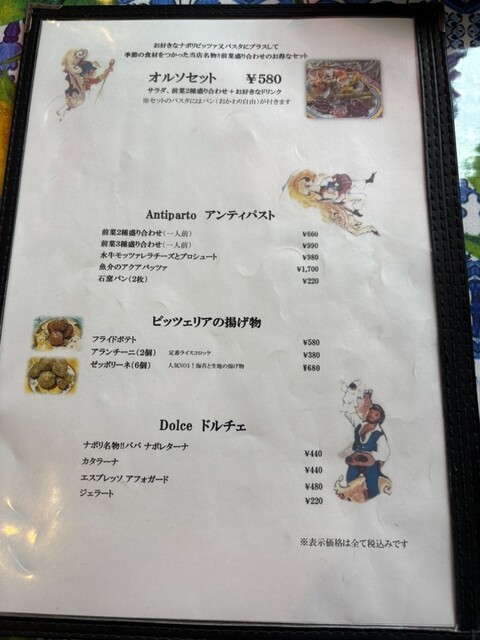 お好きなナポリピッツァ又パスタにプラスして
季節の食材をつかった当店名物!!前菜盛り合わせのお得なセット
オルソセット ￥580
サラダ、前菜2種盛り合わせ＋お好きなドリンク
※セットのパスタにはパン（おかわり自由）が付きます
Antiparto アンティパスト
前菜2種盛り合わせ（一人前） ¥660
前菜3種盛り合わせ（一人前） ¥990
水牛モッツァレラチーズとプロシュート ¥980
魚介のアクアパッツァ ¥1,700
石窯パン（2枚） ¥220
ピッツェリアの揚げ物
フライドポテト ¥580
アランチーニ（2個） 定番ライスコロッケ ¥380
ゼッポリーネ（6個） 人気NO1！海苔と生地の揚げ物 ¥680
Dolce ドルチェ
ナポリ名物!!ババ ナポレターナ ¥440
カタラーナ ¥440
エスプレッソ アフォガード ¥480
ジェラート ¥220
※表示価格は全て税込みです